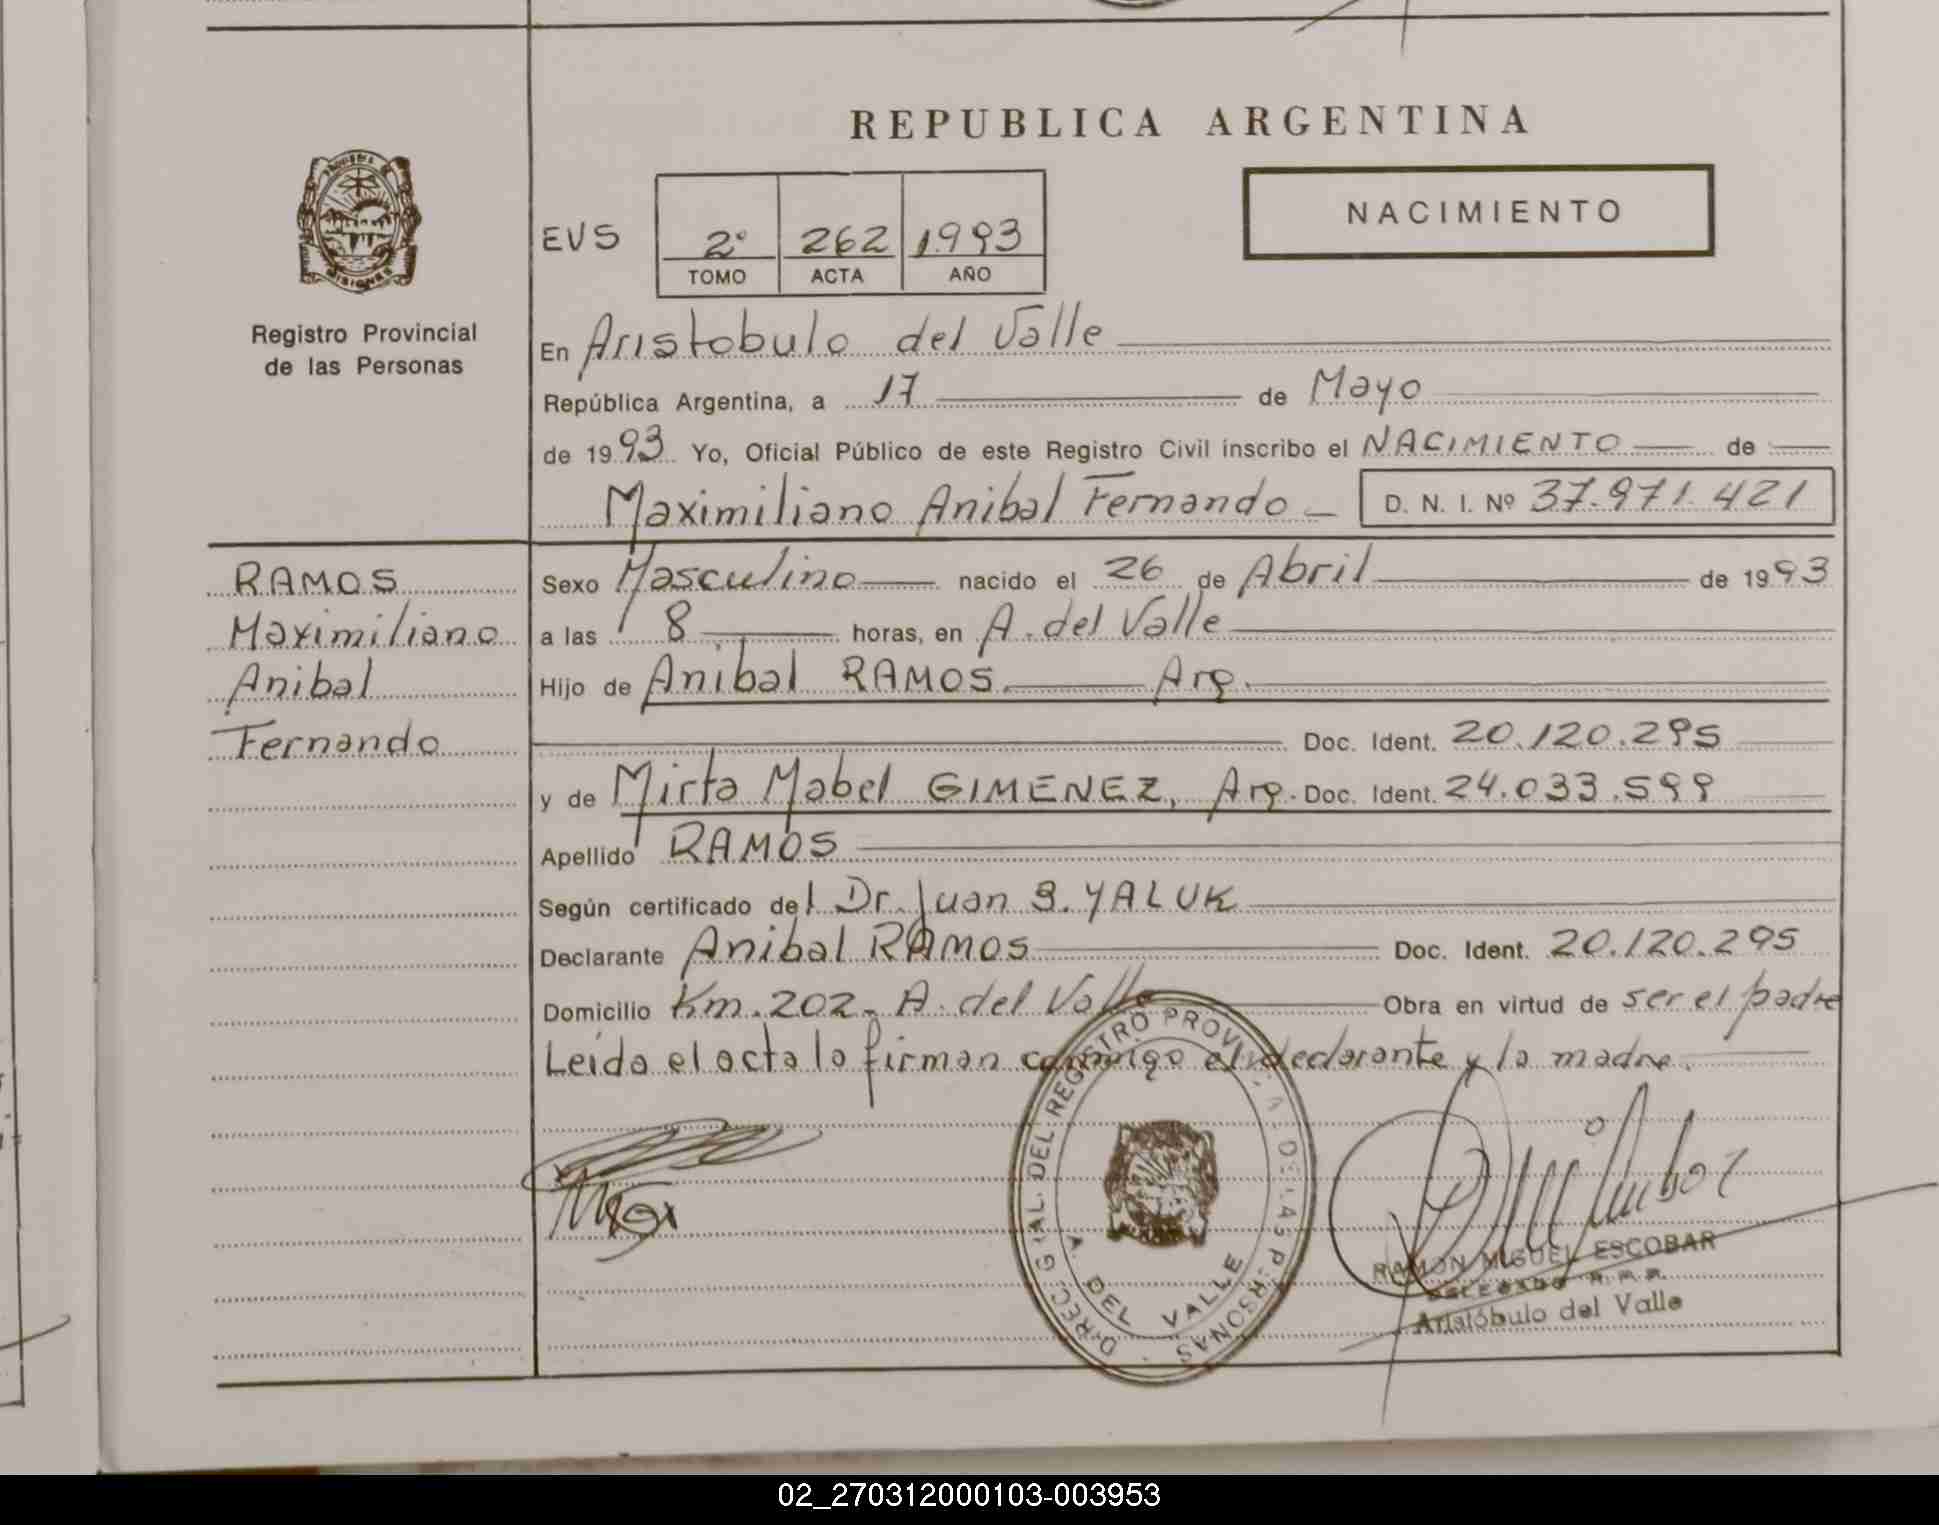 REPUBLICA ARGENTINA
NACIMIENTO
EVS 2° 262 1993
TOMO ACTA AÑO
MISIONES
Registro Provincial
de las Personas
En Aristobulo del Valle
República Argentina, a 17 de Mayo
de 1993 Yo, Oficial Público de este Registro Civil inscribo el NACIMIENTO de
Maximiliano Anibal Fernando D. N. I. Nº 37.971.421
RAMOS
Maximiliano
Anibal
Fernando
Sexo Masculino nacido el 26 de Abril de 1993
a las 8 horas, en A. del Valle
Hijo de Anibal RAMOS Arg.
Doc. Ident. 20.120.295
y de Mirta Mabel GIMENEZ, Arg. Doc. Ident. 24.033.599
Apellido RAMOS
Según certificado del Dr. Juan S. YALUK
Declarante Anibal RAMOS Doc. Ident. 20.120.295
Domicilio Km. 202 - A. del Valle Obra en virtud de ser el padre
Leida el acta la firman conmigo el declarante y la madre.
DIREC. GRAL. DEL REGISTRO PROVINCIAL DE LAS PERSONAS
A. DEL VALLE
RAMON MIGUEL ESCOBAR
DELEGADO R.P.P.
Aristóbulo del Valle
02_270312000103-003953